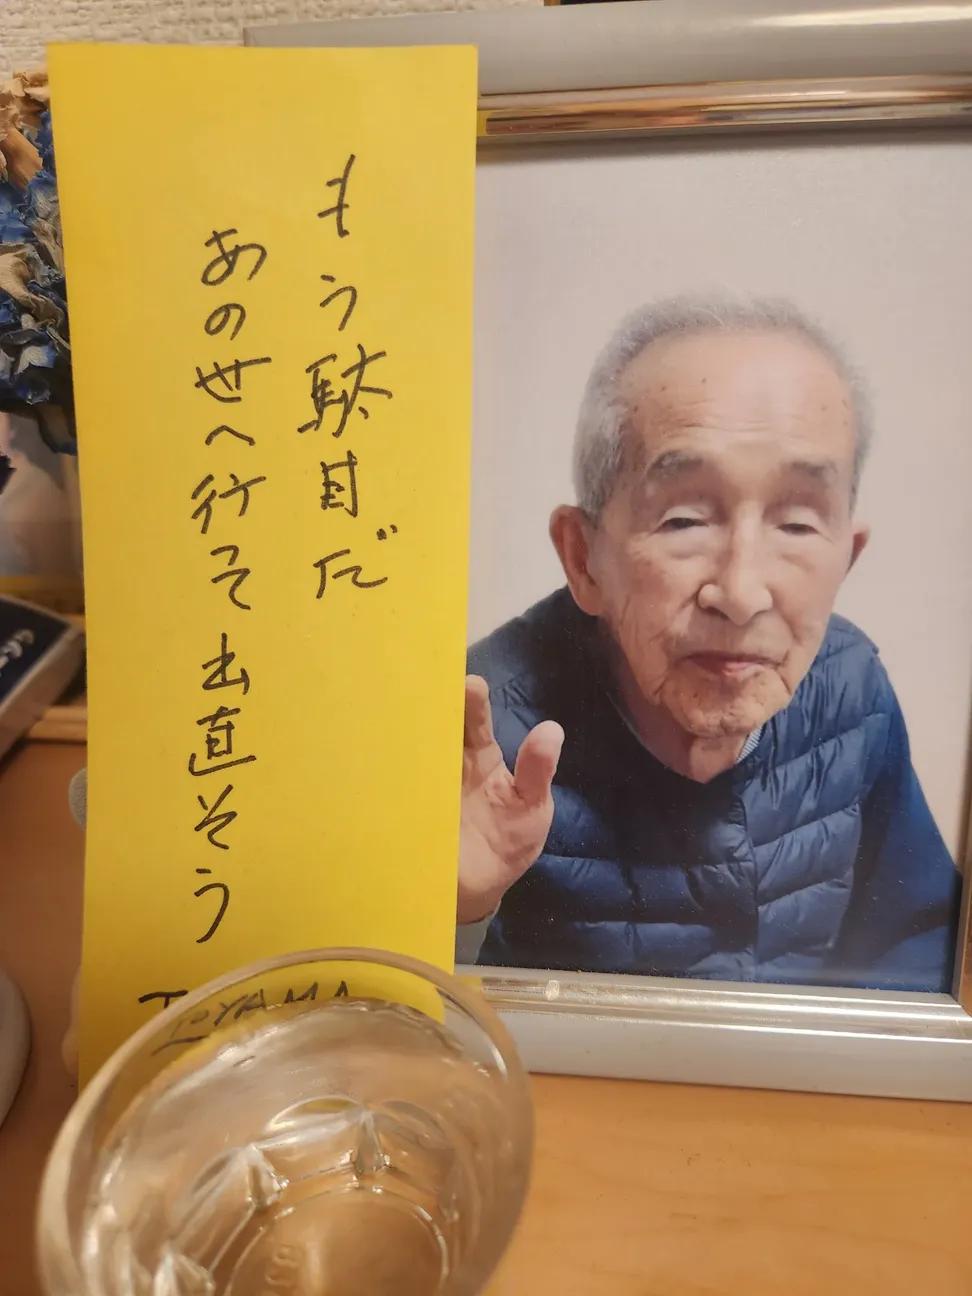 もう駄目だ
あの世へ行って出直そう
TOYAMA